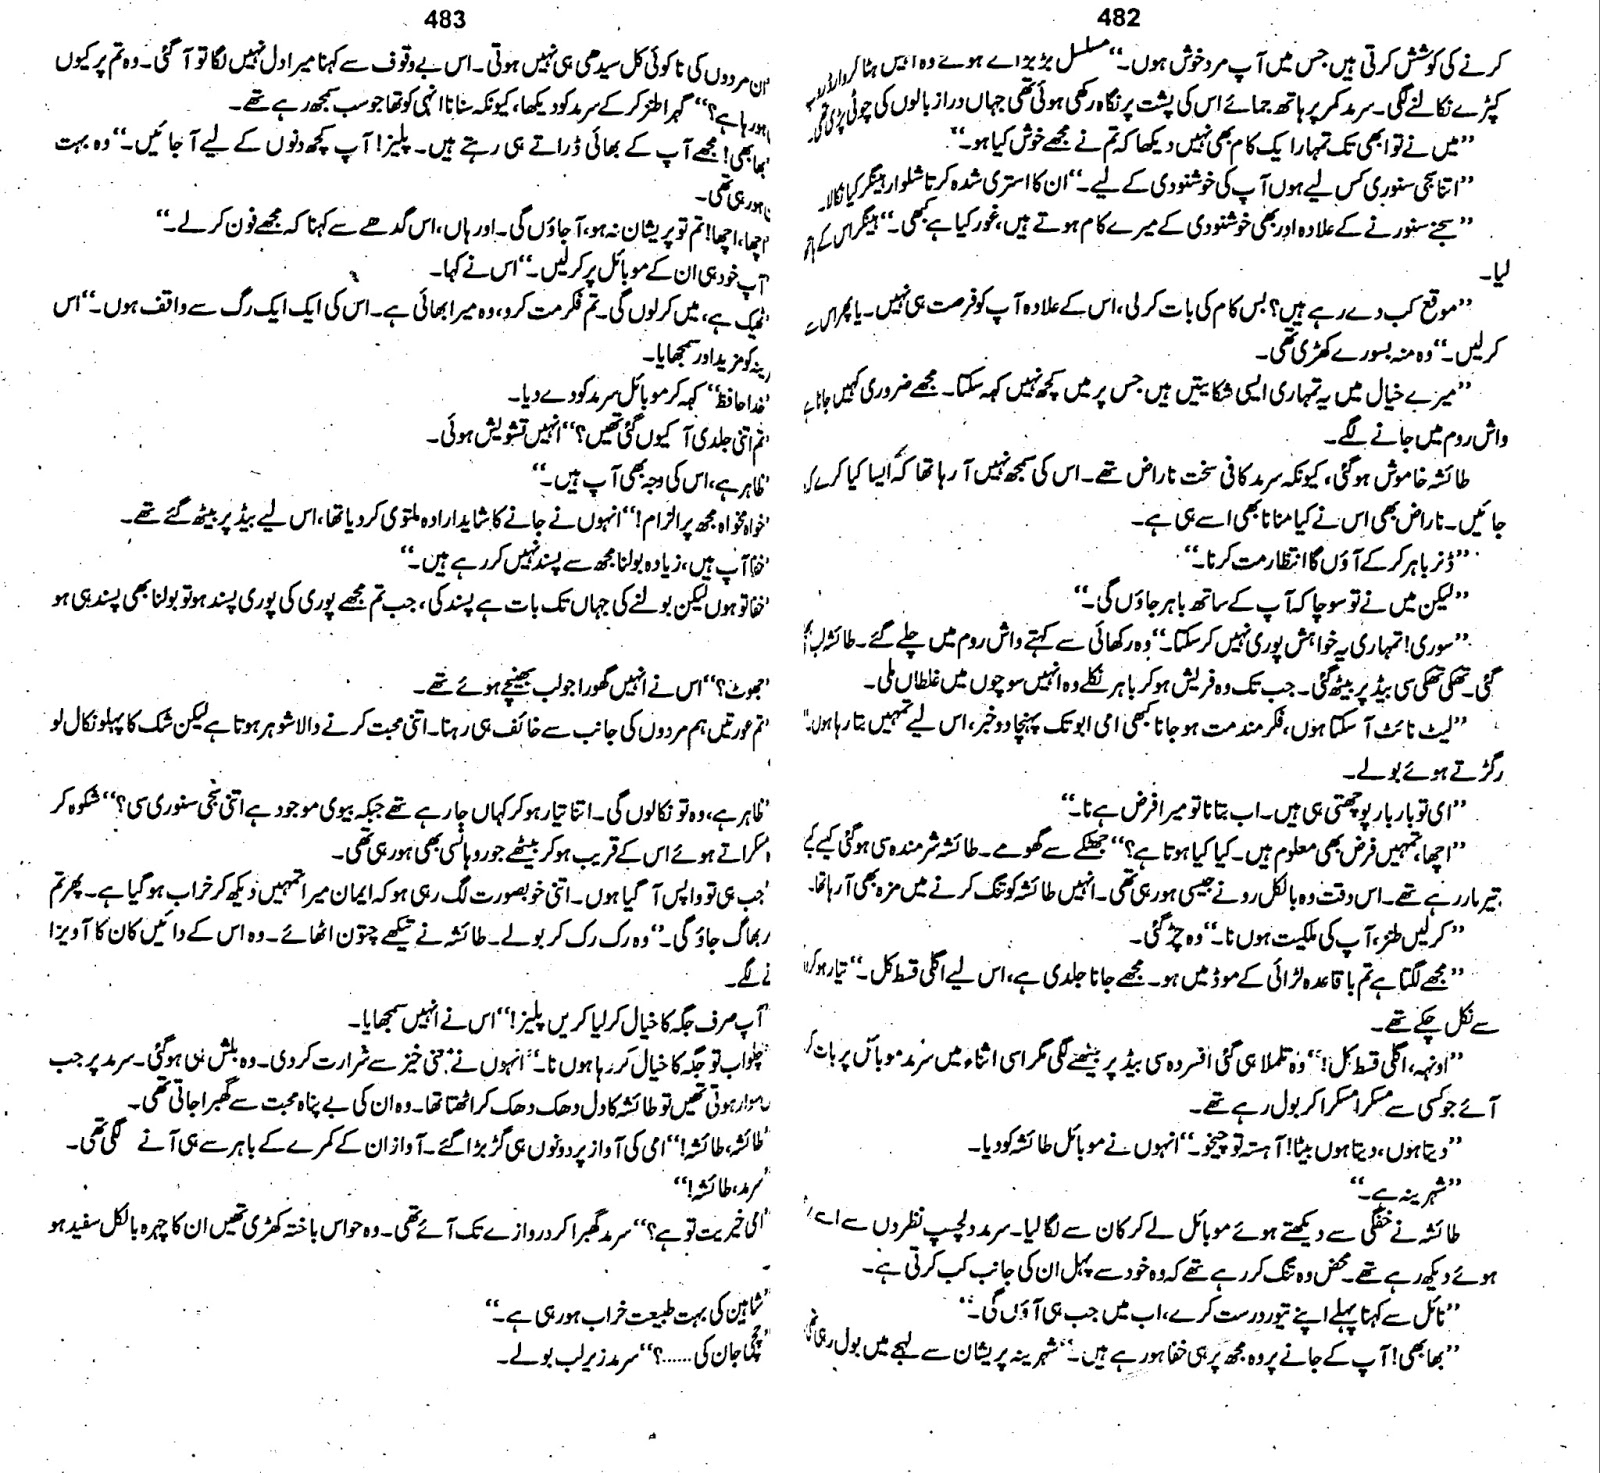 482
کرنے کی کوشش کرتی ہیں جس میں آپ مرد خوش ہوں۔“ مسلسل بڑبڑاتے ہوئے وہ انہیں ہٹا کر وارڈروب
کپڑے نکالنے لگی۔ سرمد کمر پر ہاتھ جمائے اس کی پشت پر نگاہ رکھی ہوئی تھی جہاں دراز بالوں کی چوٹی پڑی تھی۔
”میں نے تو ابھی تک تمہارا ایک کام بھی نہیں دیکھا کہ تم نے مجھے خوش کیا ہو۔“
”اتنا سجی سنوری کس لیے ہوں آپ کی خوشنودی کے لیے۔“ ان کا استری شدہ کرتا شلوار ہینگر کیا نکالا۔
”سجنے سنورنے کے علاوہ اور بھی خوشنودی کے میرے کام ہوتے ہیں، غور کیا ہے کبھی۔“ ہینگر اس کے
لیا۔
”موقع کب دے رہے ہیں؟ بس کام کی بات کر لی، اس کے علاوہ آپ کو فرصت ہی نہیں۔ یا پھر اس سے
کر لیں۔“ وہ منہ بسورے کھڑی تھی۔
”میرے خیال میں یہ تمہاری ایسی شکایتیں ہیں جس پر میں کچھ نہیں کہہ سکتا۔ مجھے ضروری کہیں جانا ہے
واش روم میں جانے لگے۔
طائشہ خاموش ہو گئی، کیونکہ سرمد کافی سخت ناراض تھے۔ اس کی سمجھ نہیں آ رہا تھا کہ ایسا کیا کرے کہ
جائیں۔ ناراض بھی اس نے کیا منانا بھی اسے ہی ہے۔
”ڈنر باہر کر کے آؤں گا انتظار مت کرنا۔“
”لیکن میں نے تو سوچا کہ آپ کے ساتھ باہر جاؤں گی۔“
”سوری! تمہاری یہ خواہش پوری نہیں کر سکتا۔“ وہ رکھائی سے کہتے واش روم میں چلے گئے۔ طائشہ لب
گئی۔ تھکی تھکی سی بیڈ پر بیٹھ گئی۔ جب تک وہ فریش ہو کر باہر نکلے وہ انہیں سوچوں میں غلطاں ملی۔
”لیٹ نائٹ آ سکتا ہوں، فکر مند مت ہو جانا کبھی امی ابو تک پہنچا دو خبر، اس لیے تمہیں بتا رہا ہوں۔“
رگڑتے ہوئے بولے۔
”امی تو بار بار پوچھتی ہی ہیں۔ اب بتانا تو میرا فرض ہے نا۔“
”اچھا، تمہیں فرض بھی معلوم ہیں۔ کیا کیا ہوتا ہے؟“ جھٹکے سے گھومے۔ طائشہ شرمندہ سی ہو گئی کیسے کیسے
تیر مار رہے تھے۔ اس وقت وہ بالکل رونے جیسی ہو رہی تھی۔ انہیں طائشہ کو تنگ کرنے میں مزہ بھی آ رہا تھا۔
”کر لیں طنز، آپ کی ملکیت ہوں نا۔“ وہ چڑ گئی۔
”مجھے لگتا ہے تم باقاعدہ لڑائی کے موڈ میں ہو۔ مجھے جانا جلدی ہے، اس لیے اگلی قسط کل۔“ تیار ہو کر
سے نکل چکے تھے۔
”اونہہ، اگلی قسط کل!“ وہ تلملا ہی گئی افسردہ سی بیڈ پر بیٹھنے لگی مگر اسی اثناء میں سرمد موبائل پر بات کر
آئے جو کسی سے مسکرا مسکرا کر بول رہے تھے۔
”دیتا ہوں، دیتا ہوں بیٹا! آہستہ تو چیخو۔“ انہوں نے موبائل طائشہ کو دیا۔
”شہرینہ ہے۔“
طائشہ نے خفگی سے دیکھتے ہوئے موبائل لے کر کان سے لگا لیا۔ سرمد دلچسپ نظروں سے اسے
ہوئے دیکھ رہے تھے۔ محض وہ تنگ کر رہے تھے کہ وہ خود سے پہل ان کی جانب کب کرتی ہے۔
”نائل سے کہنا پہلے اپنے تیور درست کرے، اب میں جب ہی آؤں گی۔“
”بھابھی! آپ کے جانے پر وہ مجھ پر ہی خفا ہو رہے ہیں۔“ شہرینہ پریشان سے لہجے میں بول رہی تھی
483
ان مردوں کی نا کوئی کل سیدھی ہی نہیں ہوتی۔ اس بے وقوف سے کہنا میرا دل نہیں لگا تو آ گئی۔ وہ تم پر کیوں
ہو رہا ہے؟“ گہرا طنز کر کے سرمد کو دیکھا، کیونکہ سنانا انہی کو تھا جو سب سمجھ رہے تھے۔
بھابھی! مجھے آپ کے بھائی ڈراتے ہی رہتے ہیں۔ پلیز! آپ کچھ دنوں کے لیے آ جائیں۔“ وہ بہت
ہو رہی تھی۔
اچھا، اچھا! تم تو پریشان نہ ہو، آ جاؤں گی۔ اور ہاں، اس گدھے سے کہنا کہ مجھے فون کر لے۔“
آپ خود ہی ان کے موبائل پر کر لیں۔“ اس نے کہا۔
ٹھیک ہے، میں کر لوں گی۔ تم فکر مت کرو، وہ میرا بھائی ہے۔ اس کی ایک ایک رگ سے واقف ہوں۔“ اس
رینہ کو مزید اور سمجھایا۔
خدا حافظ“ کہہ کر موبائل سرمد کو دے دیا۔
’تم اتنی جلدی آ کیوں گئی تھیں؟“ انہیں تشویش ہوئی۔
’ظاہر ہے، اس کی وجہ بھی آپ ہیں۔“
’خواہ مخواہ مجھ پر الزام!“ انہوں نے جانے کا شاید ارادہ ملتوی کر دیا تھا، اس لیے بیڈ پر بیٹھ گئے تھے۔
’خفا آپ ہیں، زیادہ بولنا مجھ سے پسند نہیں کر رہے ہیں۔“
’خفا تو ہوں لیکن بولنے کی جہاں تک بات ہے پسند کی، جب تم مجھے پوری کی پوری پسند ہو تو بولنا بھی پسند ہی ہو
’جھوٹ؟“ اس نے انہیں گھورا جو لب بھینچے ہوئے تھے۔
’تم عورتیں ہم مردوں کی جانب سے خائف ہی رہنا۔ اتنی محبت کرنے والا شوہر ہوتا ہے لیکن شک کا پہلو نکال لو
’ظاہر ہے، وہ تو نکالوں گی۔ اتنا تیار ہو کر کہاں جا رہے تھے جبکہ بیوی موجود ہے اتنی سجی سنوری سی؟“ شکوہ کر
مسکراتے ہوئے اس کے قریب ہو کر بیٹھے جو روہانسی بھی ہو رہی تھی۔
’جب ہی تو واپس آ گیا ہوں۔ اتنی خوبصورت لگ رہی ہو کہ ایمان میرا تمہیں دیکھ کر خراب ہو گیا ہے۔ پھر تم
بھاگ جاؤ گی۔“ وہ رک رک کر بولے۔ طائشہ نے تیکھے چتون اٹھائے۔ وہ اس کے دائیں کان کا آویزا
نے لگے۔
’آپ صرف جگہ کا خیال کر لیا کریں پلیز!“ اس نے انہیں سمجھایا۔
’چلو اب تو جگہ کا خیال کر رہا ہوں نا۔“ انہوں نے معنی خیز سے شرارت کر دی۔ وہ بلش ہی ہو گئی۔ سرمد پر جب
سوار ہوتی تھیں تو طائشہ کا دل دھک دھک کر اٹھتا تھا۔ وہ ان کی بے پناہ محبت سے گھبرا جاتی تھی۔
’طائشہ، طائشہ!“ امی کی آواز پر دونوں ہی گڑبڑا گئے۔ آواز ان کے کمرے کے باہر سے ہی آنے لگی تھی۔
’سرمد، طائشہ!“
’امی خیریت تو ہے؟“ سرمد گھبرا کر دروازے تک آئے تھی۔ وہ حواس باختہ کھڑی تھیں ان کا چہرہ بالکل سفید ہو
’شاہین کی بہت طبیعت خراب ہو رہی ہے۔“
’چچی جان کی ......؟“ سرمد زیر لب بولے۔